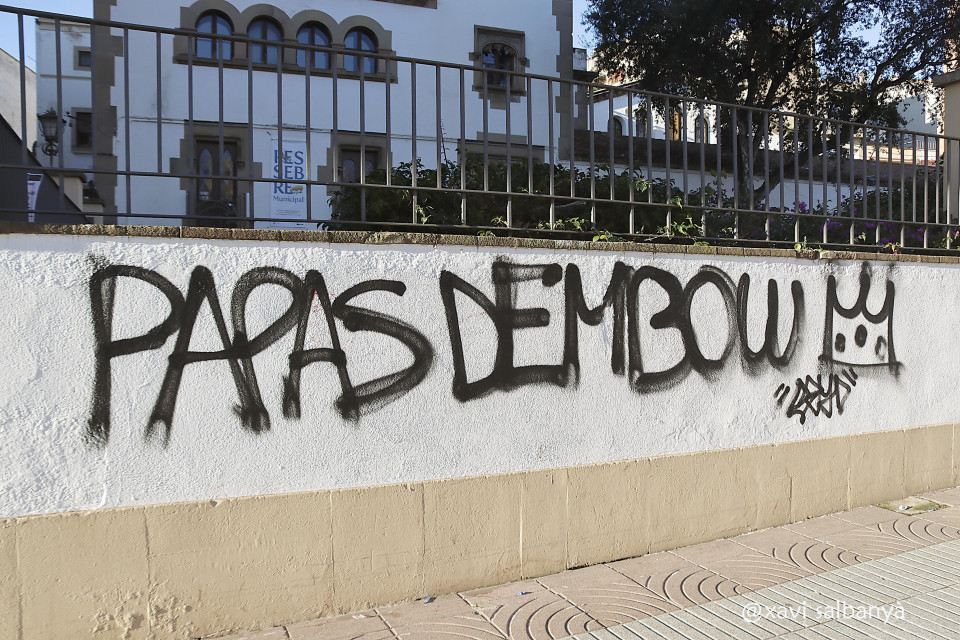 PES
SEB
RE
Municipal
PAPAS DEMBOW
@xavi salbanyà